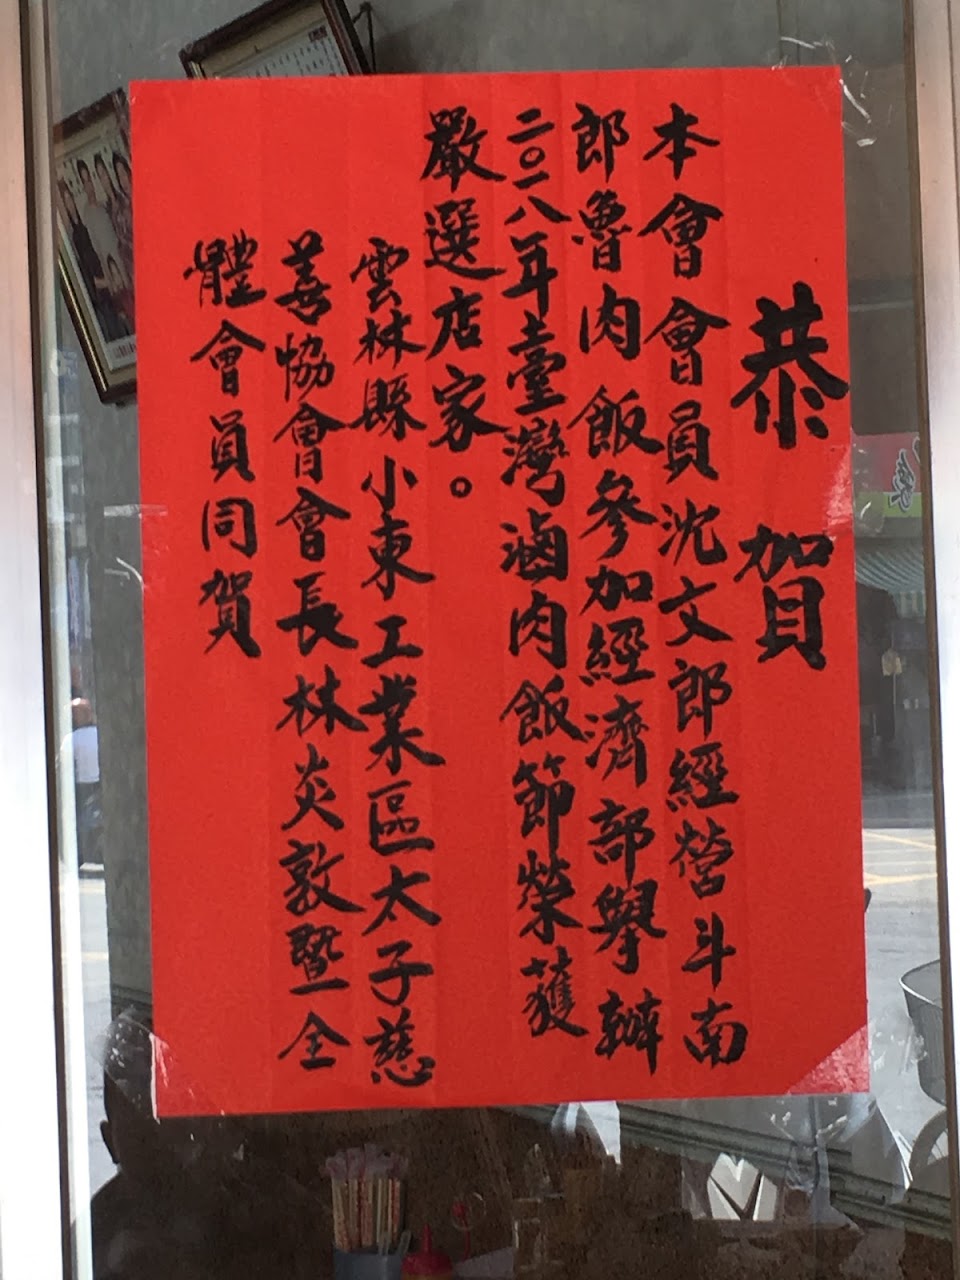 恭賀
本會會員沈文郎經營斗南
郎魯肉飯參加經濟部舉辦
二〇一八年臺灣滷肉飯節榮獲
嚴選店家。
雲林縣小東工業區太子慈
善協會會長林炎敦暨全
體會員同賀